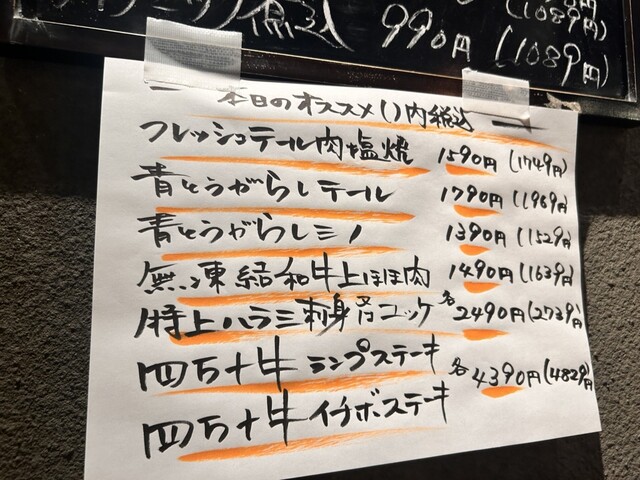 990円 (1089円)
(1089円)
本日のオススメ()内税込
フレッシュテール肉塩焼 1590円(1749円)
青とうがらしテール 1790円(1969円)
青とうがらしミノ 1390円(1529円)
無凍結和牛上ほほ肉 1490円(1639円)
特上ハラミ刺身 ユッケ 各2490円(2739円)
四万十牛ランプステーキ
各4390円(4829円)
四万十牛イチボステーキ